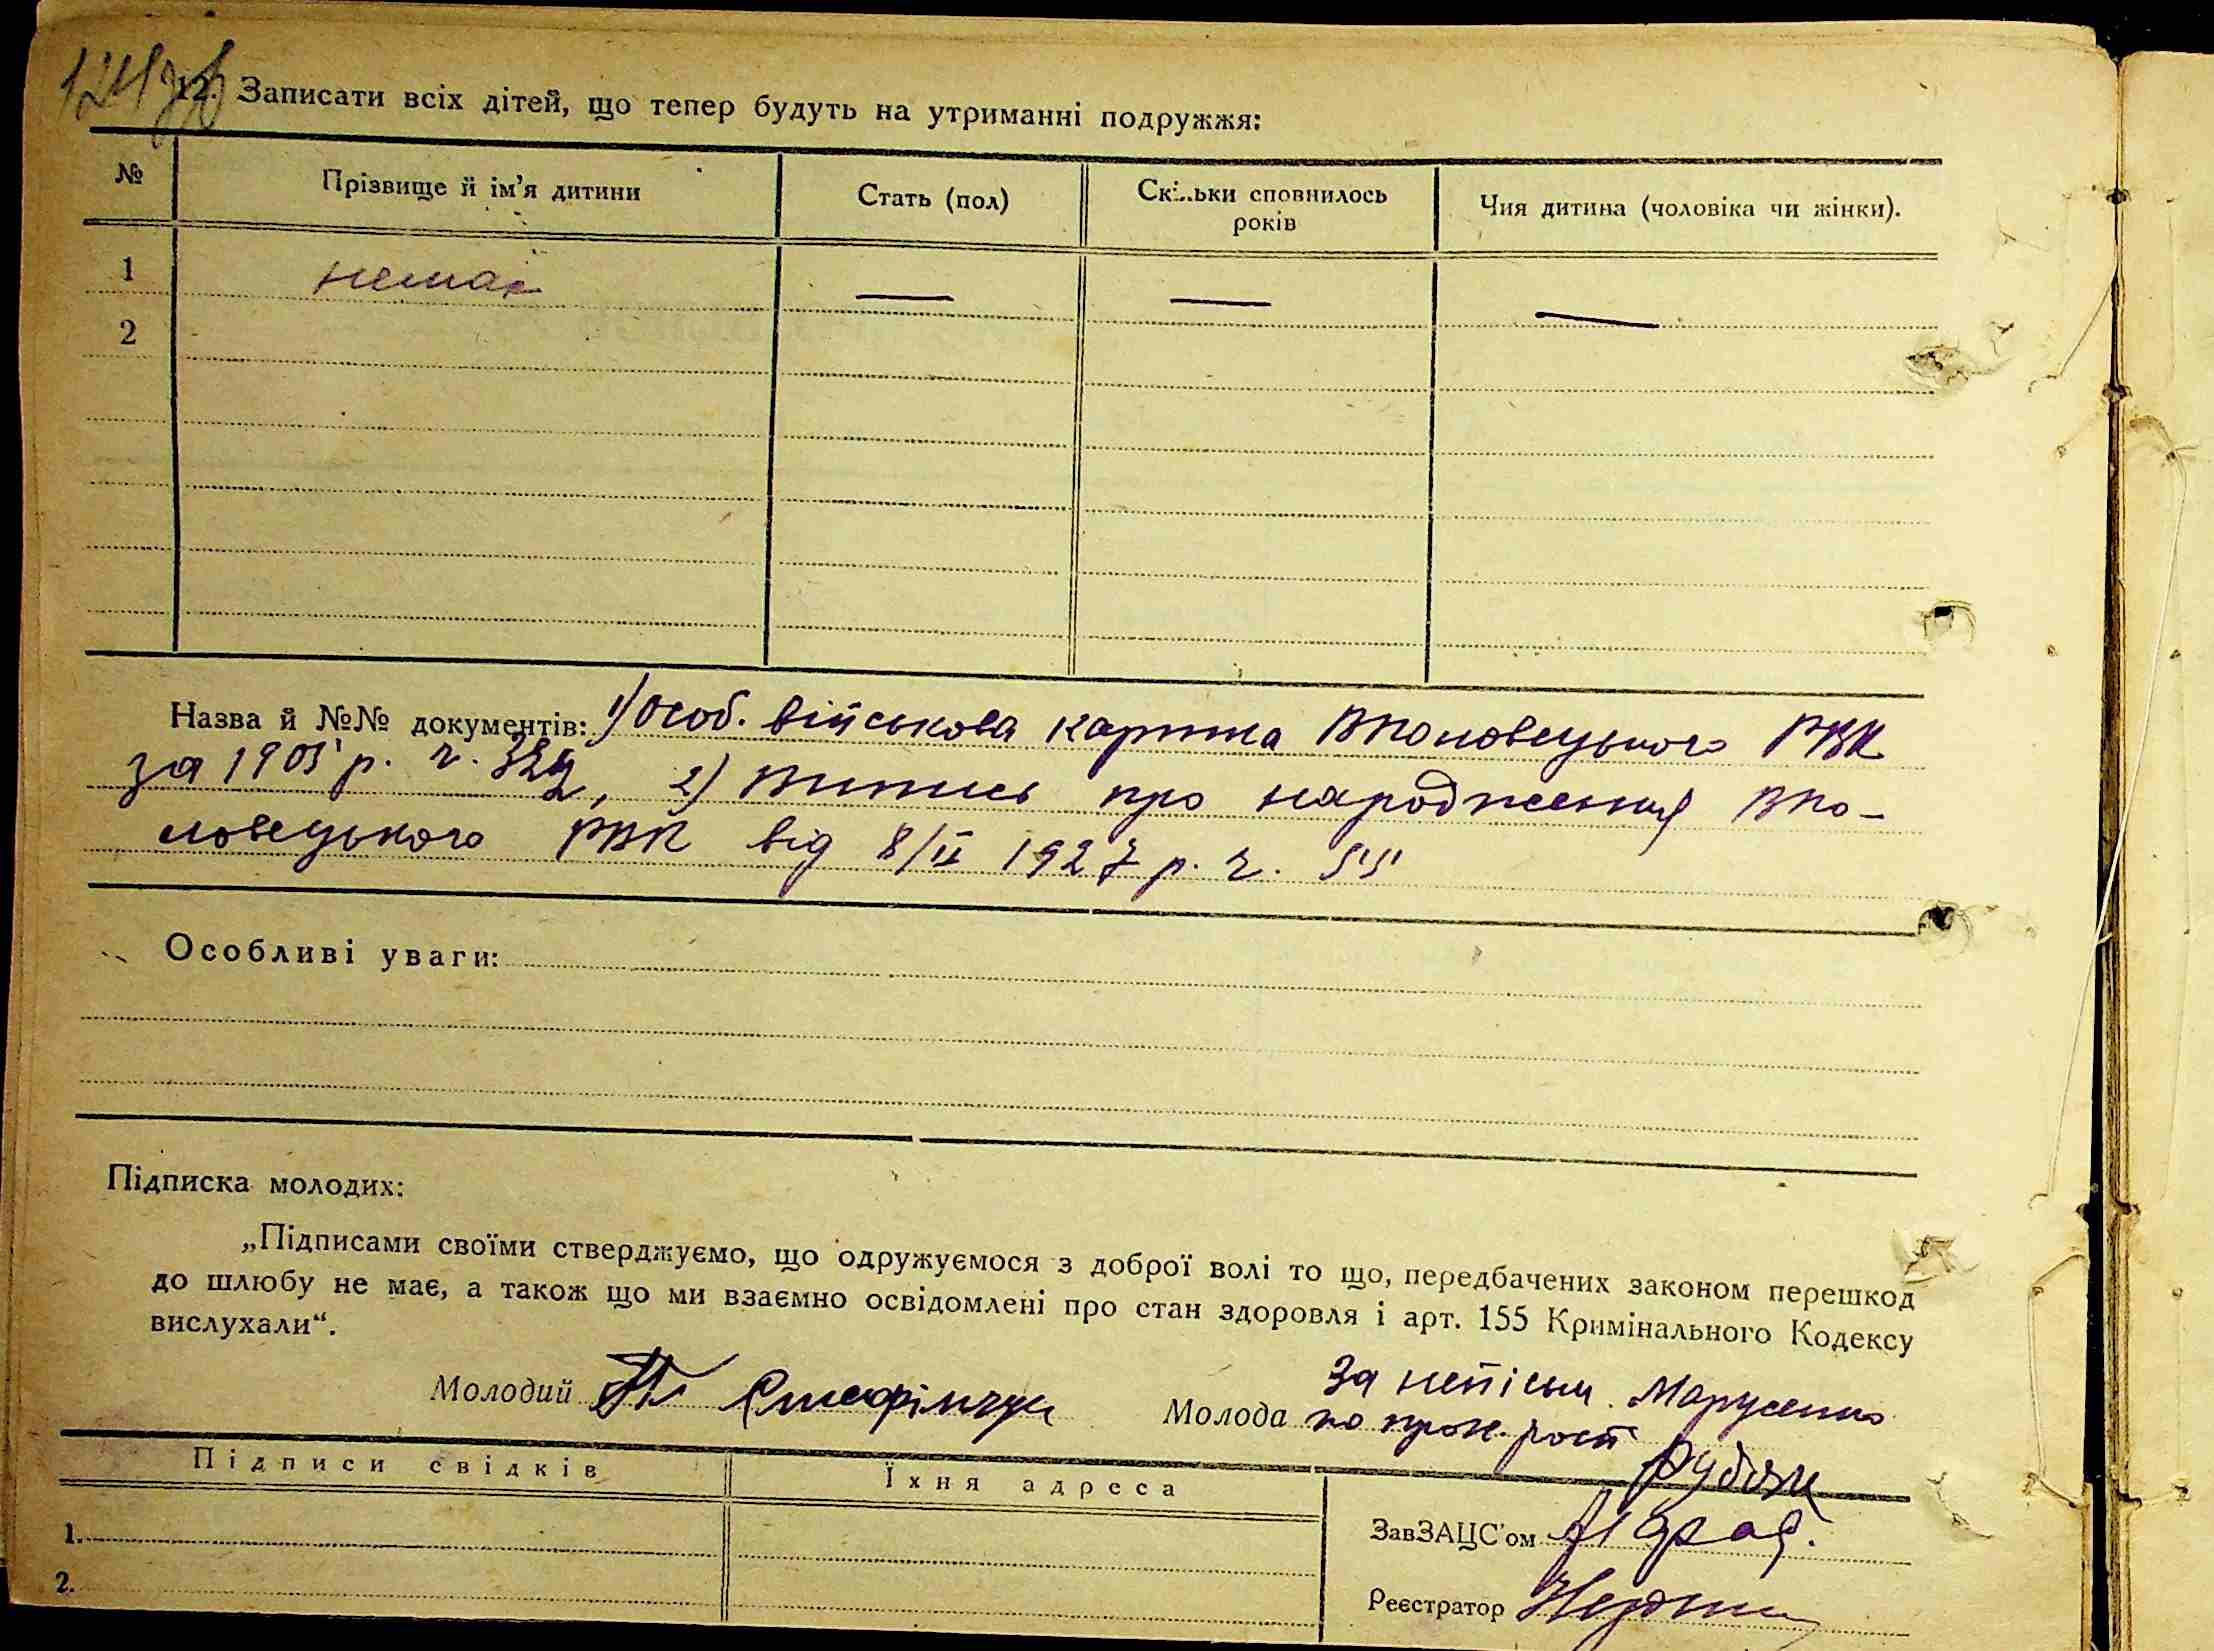 12. Записати всіх дітей, що тепер будуть на утриманні подружжя:
№ Прізвище й ім'я дитини Стать (пол) Скільки сповнилось років Чия дитина (чоловіка чи жінки).
1 немає — — —
2
Назва й №№ документів: 1) Особ. військова картка РВК
за 1905 р. ч. 2) Витись про народження
РВК від 8/II 1927 р. ч. 55
Особливі уваги:
Підписка молодих:
„Підписами своїми стверджуємо, що одружуємося з доброї волі то що, передбачених законом перешкод
до шлюбу не має, а також що ми взаємно освідомлені про стан здоровля і арт. 155 Кримінального Кодексу
вислухали“.
Молодий Молода За непісьм. Марусенко
по прох. рост
Підписи свідків Їхня адреса
1.
ЗавЗАЦС'ом
2.
Реєстратор